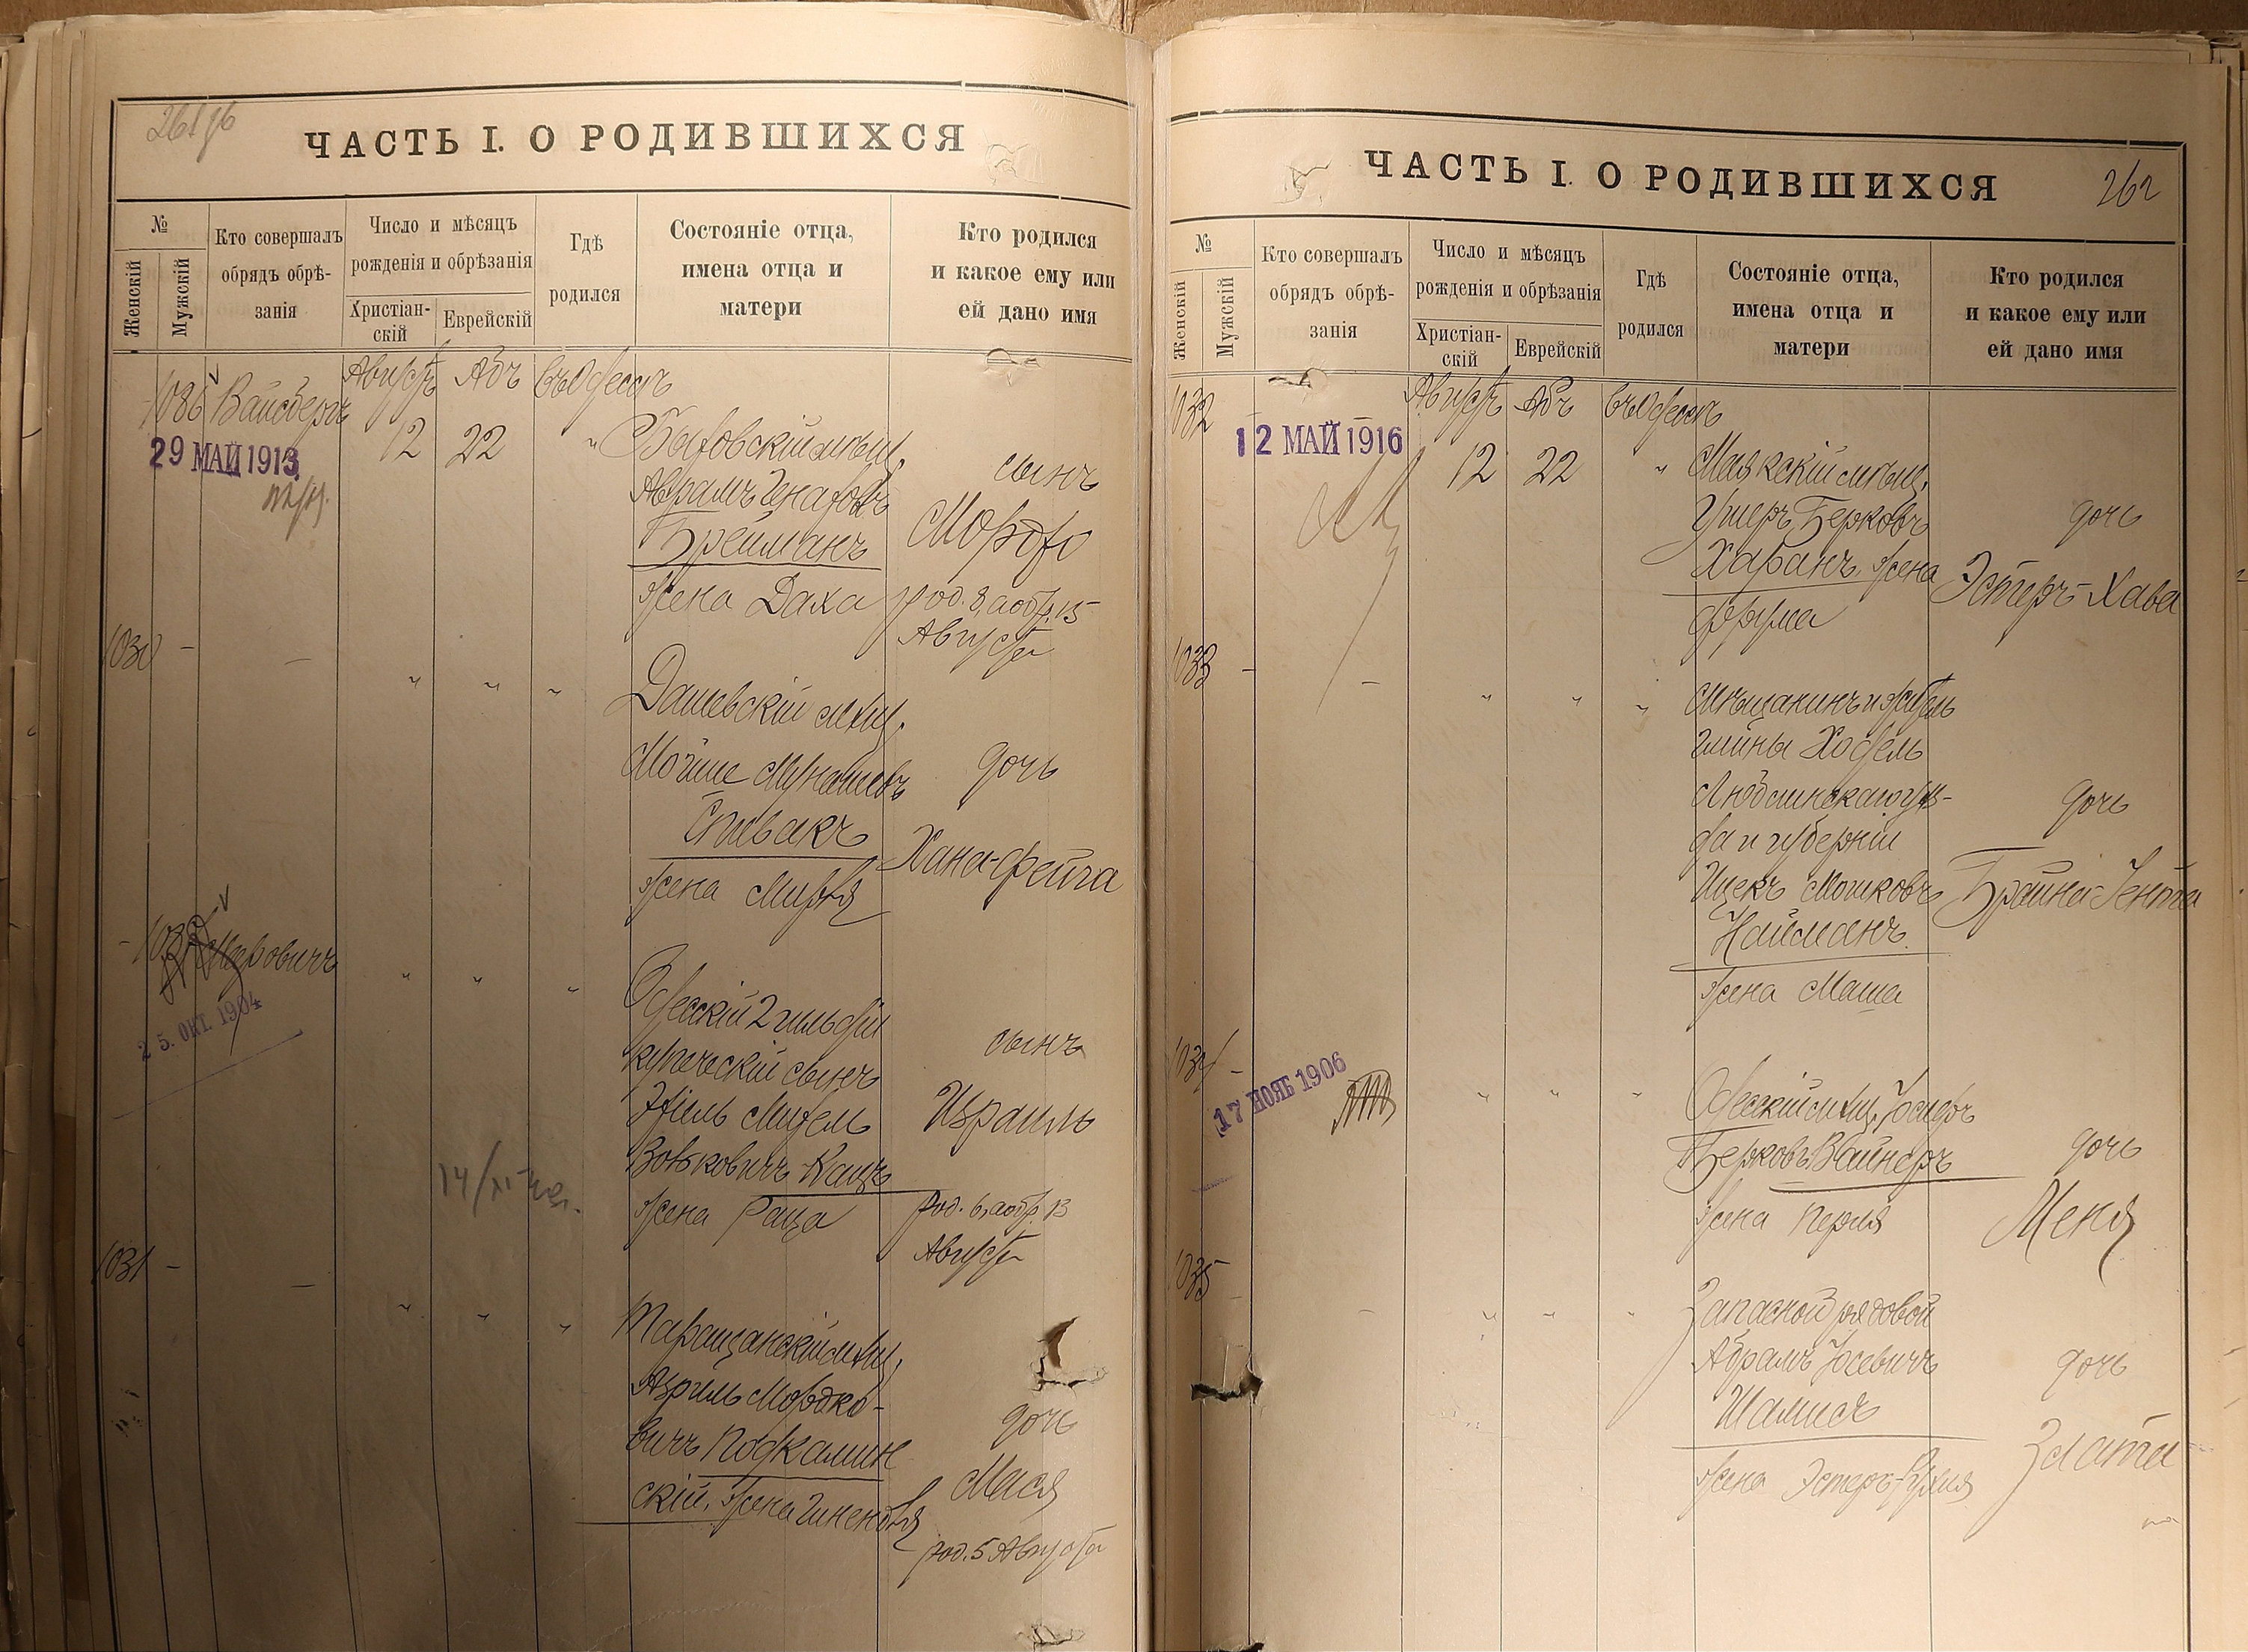 ЧАСТЬ I. О РОДИВШИХСЯ
№
Женскій
Мужскій
Кто совершалъ
обрядъ обрѣ-
занія
Число и мѣсяцъ
рожденія и обрѣзанія
Христіан-
скій
Еврейскій
Гдѣ
родился
Состояніе отца,
имена отца и
матери
Кто родился
и какое ему или
ей дано имя
1086 Вайсбергъ
Августъ Абъ въ Одессѣ
12 22 "
29 МАЙ 1913
мѣщ.
Абрамъ
Брейманъ
жена Даха
сынъ
Мордко
род. 8, а обр. 15
Августа
1030 - -
" " "
Дашевскій мѣщ.
Мойше Мунашевъ
Спивакъ
жена Мирля
дочь
Хана-Фейга
Меровичъ
25. ОКТ. 1904
" " "
Одесскій 2 гильдіи
купеческій сынъ
Михель
Вольковичъ Кацъ
жена Раца
сынъ
Израиль
род. 6, а обр. 13
Августа
14/XI
1031 - -
" " "
Таращанскій мѣщ.
Азриль Мордко-
вичъ Подкамин
скій, жена Гинендля
дочь
Мася
род. 5 Августа
ЧАСТЬ I. О РОДИВШИХСЯ
262
№
Женскій
Мужскій
Кто совершалъ
обрядъ обрѣ-
занія
Число и мѣсяцъ
рожденія и обрѣзанія
Христіан-
скій
Еврейскій
Гдѣ
родился
Состояніе отца,
имена отца и
матери
Кто родился
и какое ему или
ей дано имя
1032 -
Августъ Абъ въ Одессѣ
12 22 "
12 МАЙ 1916
Маякскій мѣщ.
Ушеръ Берковъ
Харанъ, жена
Фрума
дочь
Эстеръ-Хава
1033 - -
" " "
Мѣщанинъ и житель
гмины Ходель
Люблинскаго уѣз-
да и губерніи
Ицекъ Мошковъ
Найманъ
жена Маша
дочь
Брайна-Гентa
1034 -
17 НОЯБ 1906
" " "
Одесскій мѣщ. Іосифъ
Берковъ Вайнеръ
жена Перля
дочь
Меня
1035 - -
" " "
Запасной рядовой
Абрамъ Іосевичъ
Шамисъ
жена Эстеръ-Рухля
дочь
Злата